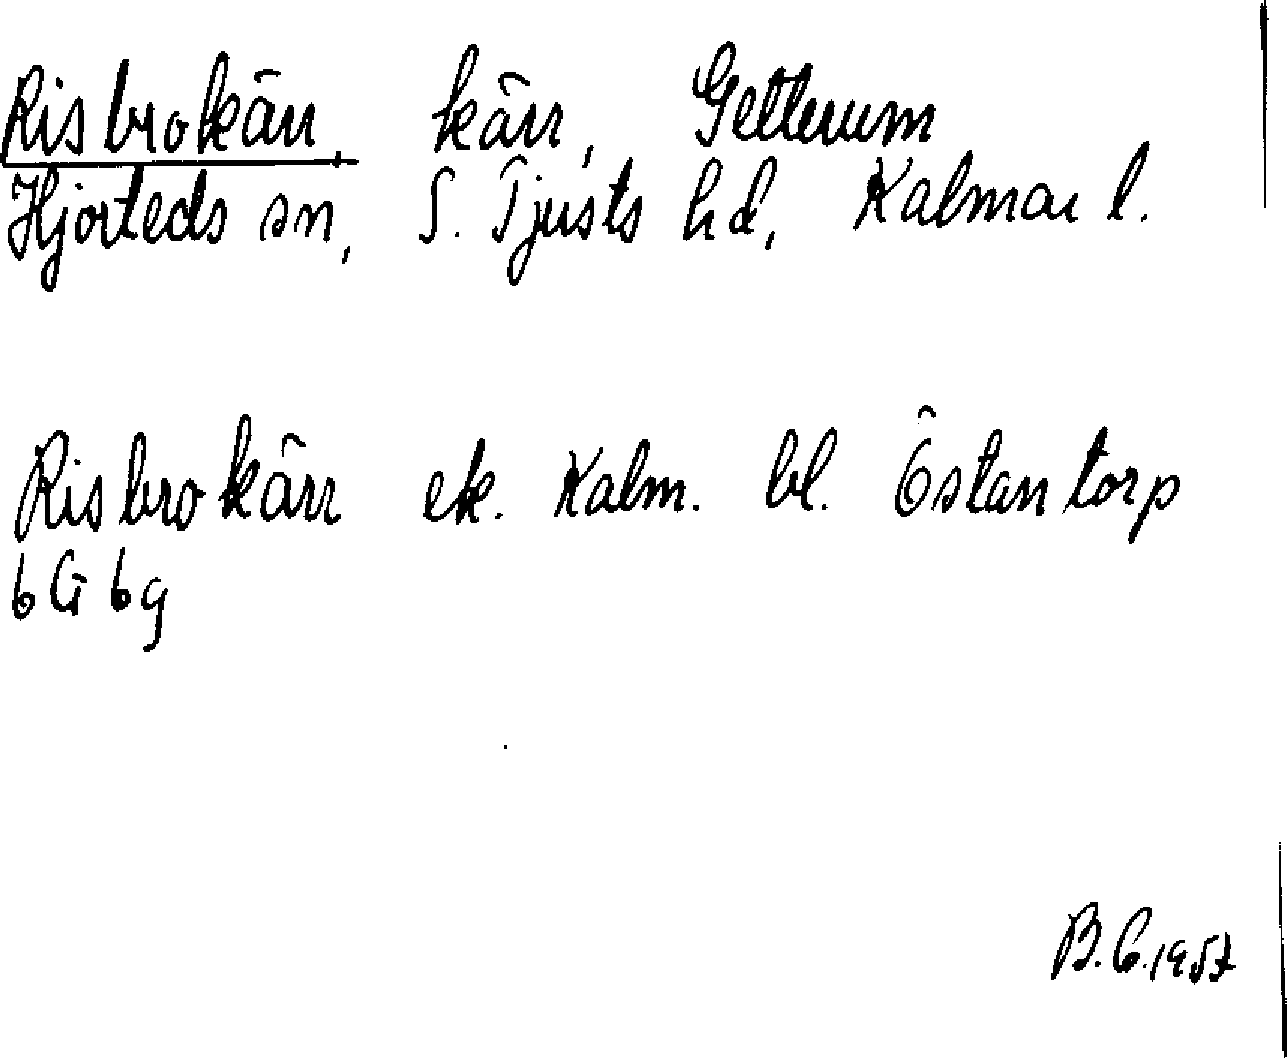 Risbrokärr, kärr, Getterum
Hjorteds sn, S. Tjusts hd, Kalmar l.
Risbrokärr ek. Kalm. bl. Östantorp
6 G 6 g
B.G. 1957